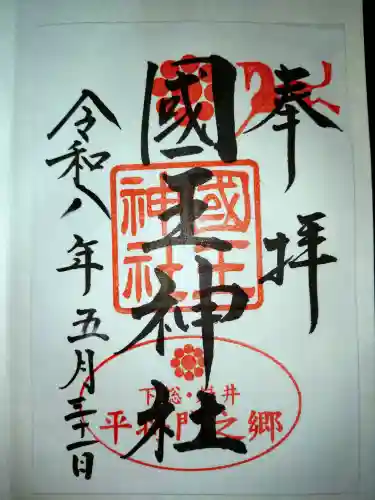 奉拝
國王神社
國王神社
下総・岩井
平将門之郷
令和八年五月三十一日